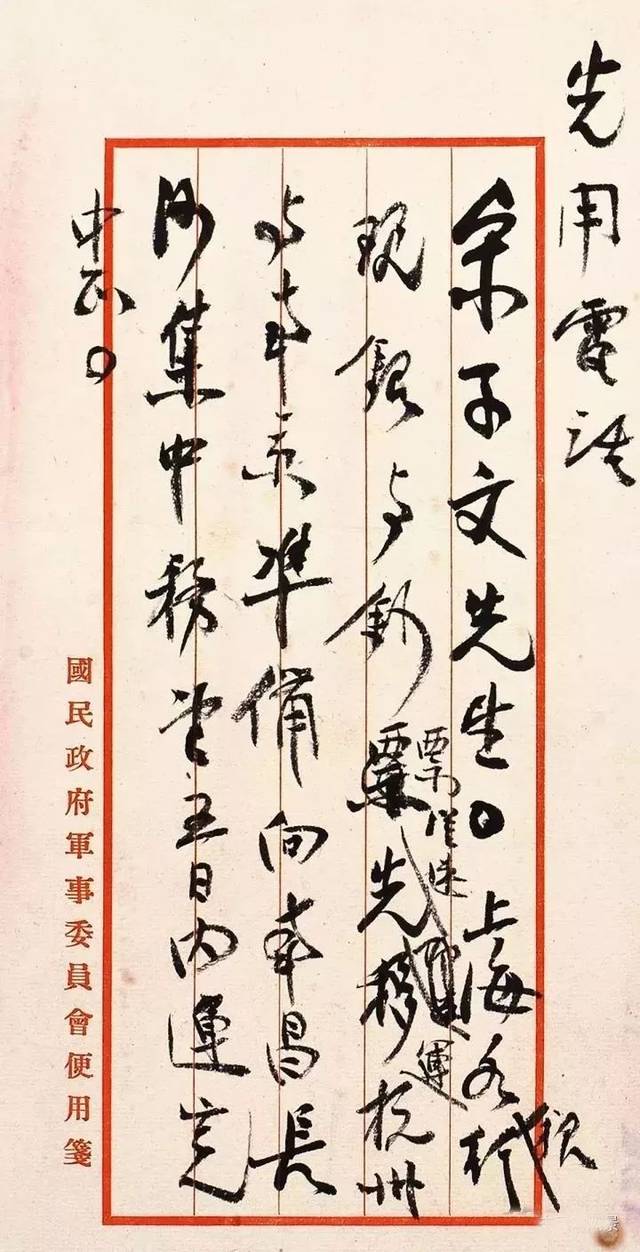 先用電話
宋子文先生。上海各銀行
現銀与鈔票從速先移運杭州
与南京準備向南昌長
沙集中務望五日內運完
中正。
國民政府軍事委員會便用箋